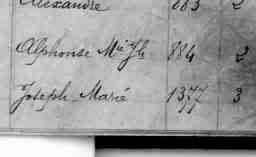 Alexandre 883 2
Alphonse Mie Jh 884 2
Joseph-Marie 1377 3